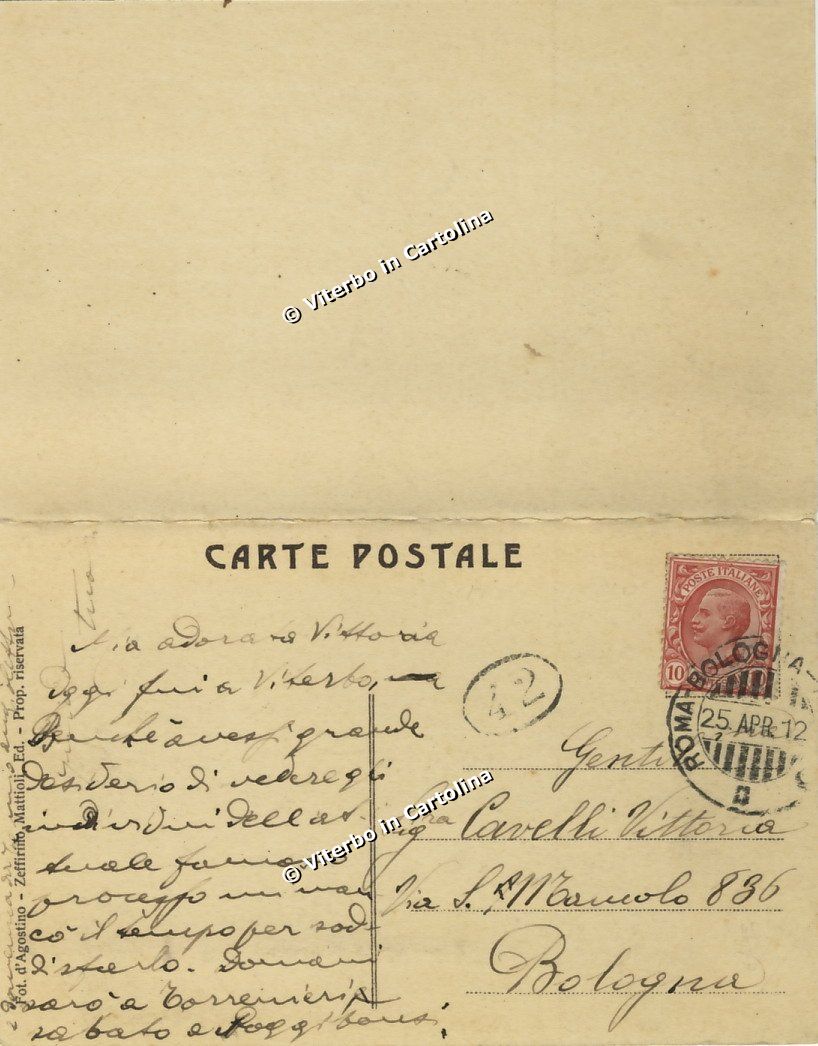 © Viterbo in Cartolina
CARTE POSTALE
POSTE ITALIANE
10
ROMA-BOLOGNA
25 APR 12
42
Mia adorata Vittoria
Oggi fui a Viterbo, ma
Benchè avessi grande
desiderio di vedere gli
individui dell'at-
tuale famoso
processo mi man
cò il tempo per sod
disfarlo. Domani
sarò a Torrenieri
sabato a Poggibonsi,
e domenica
tua
Gentil
Sigra Cavelli Vittoria
Via S. 836
Bologna
© Viterbo in Cartolina
Fot. d'Agostino - Zeffirino Mattioli, Ed. - Prop. riservata